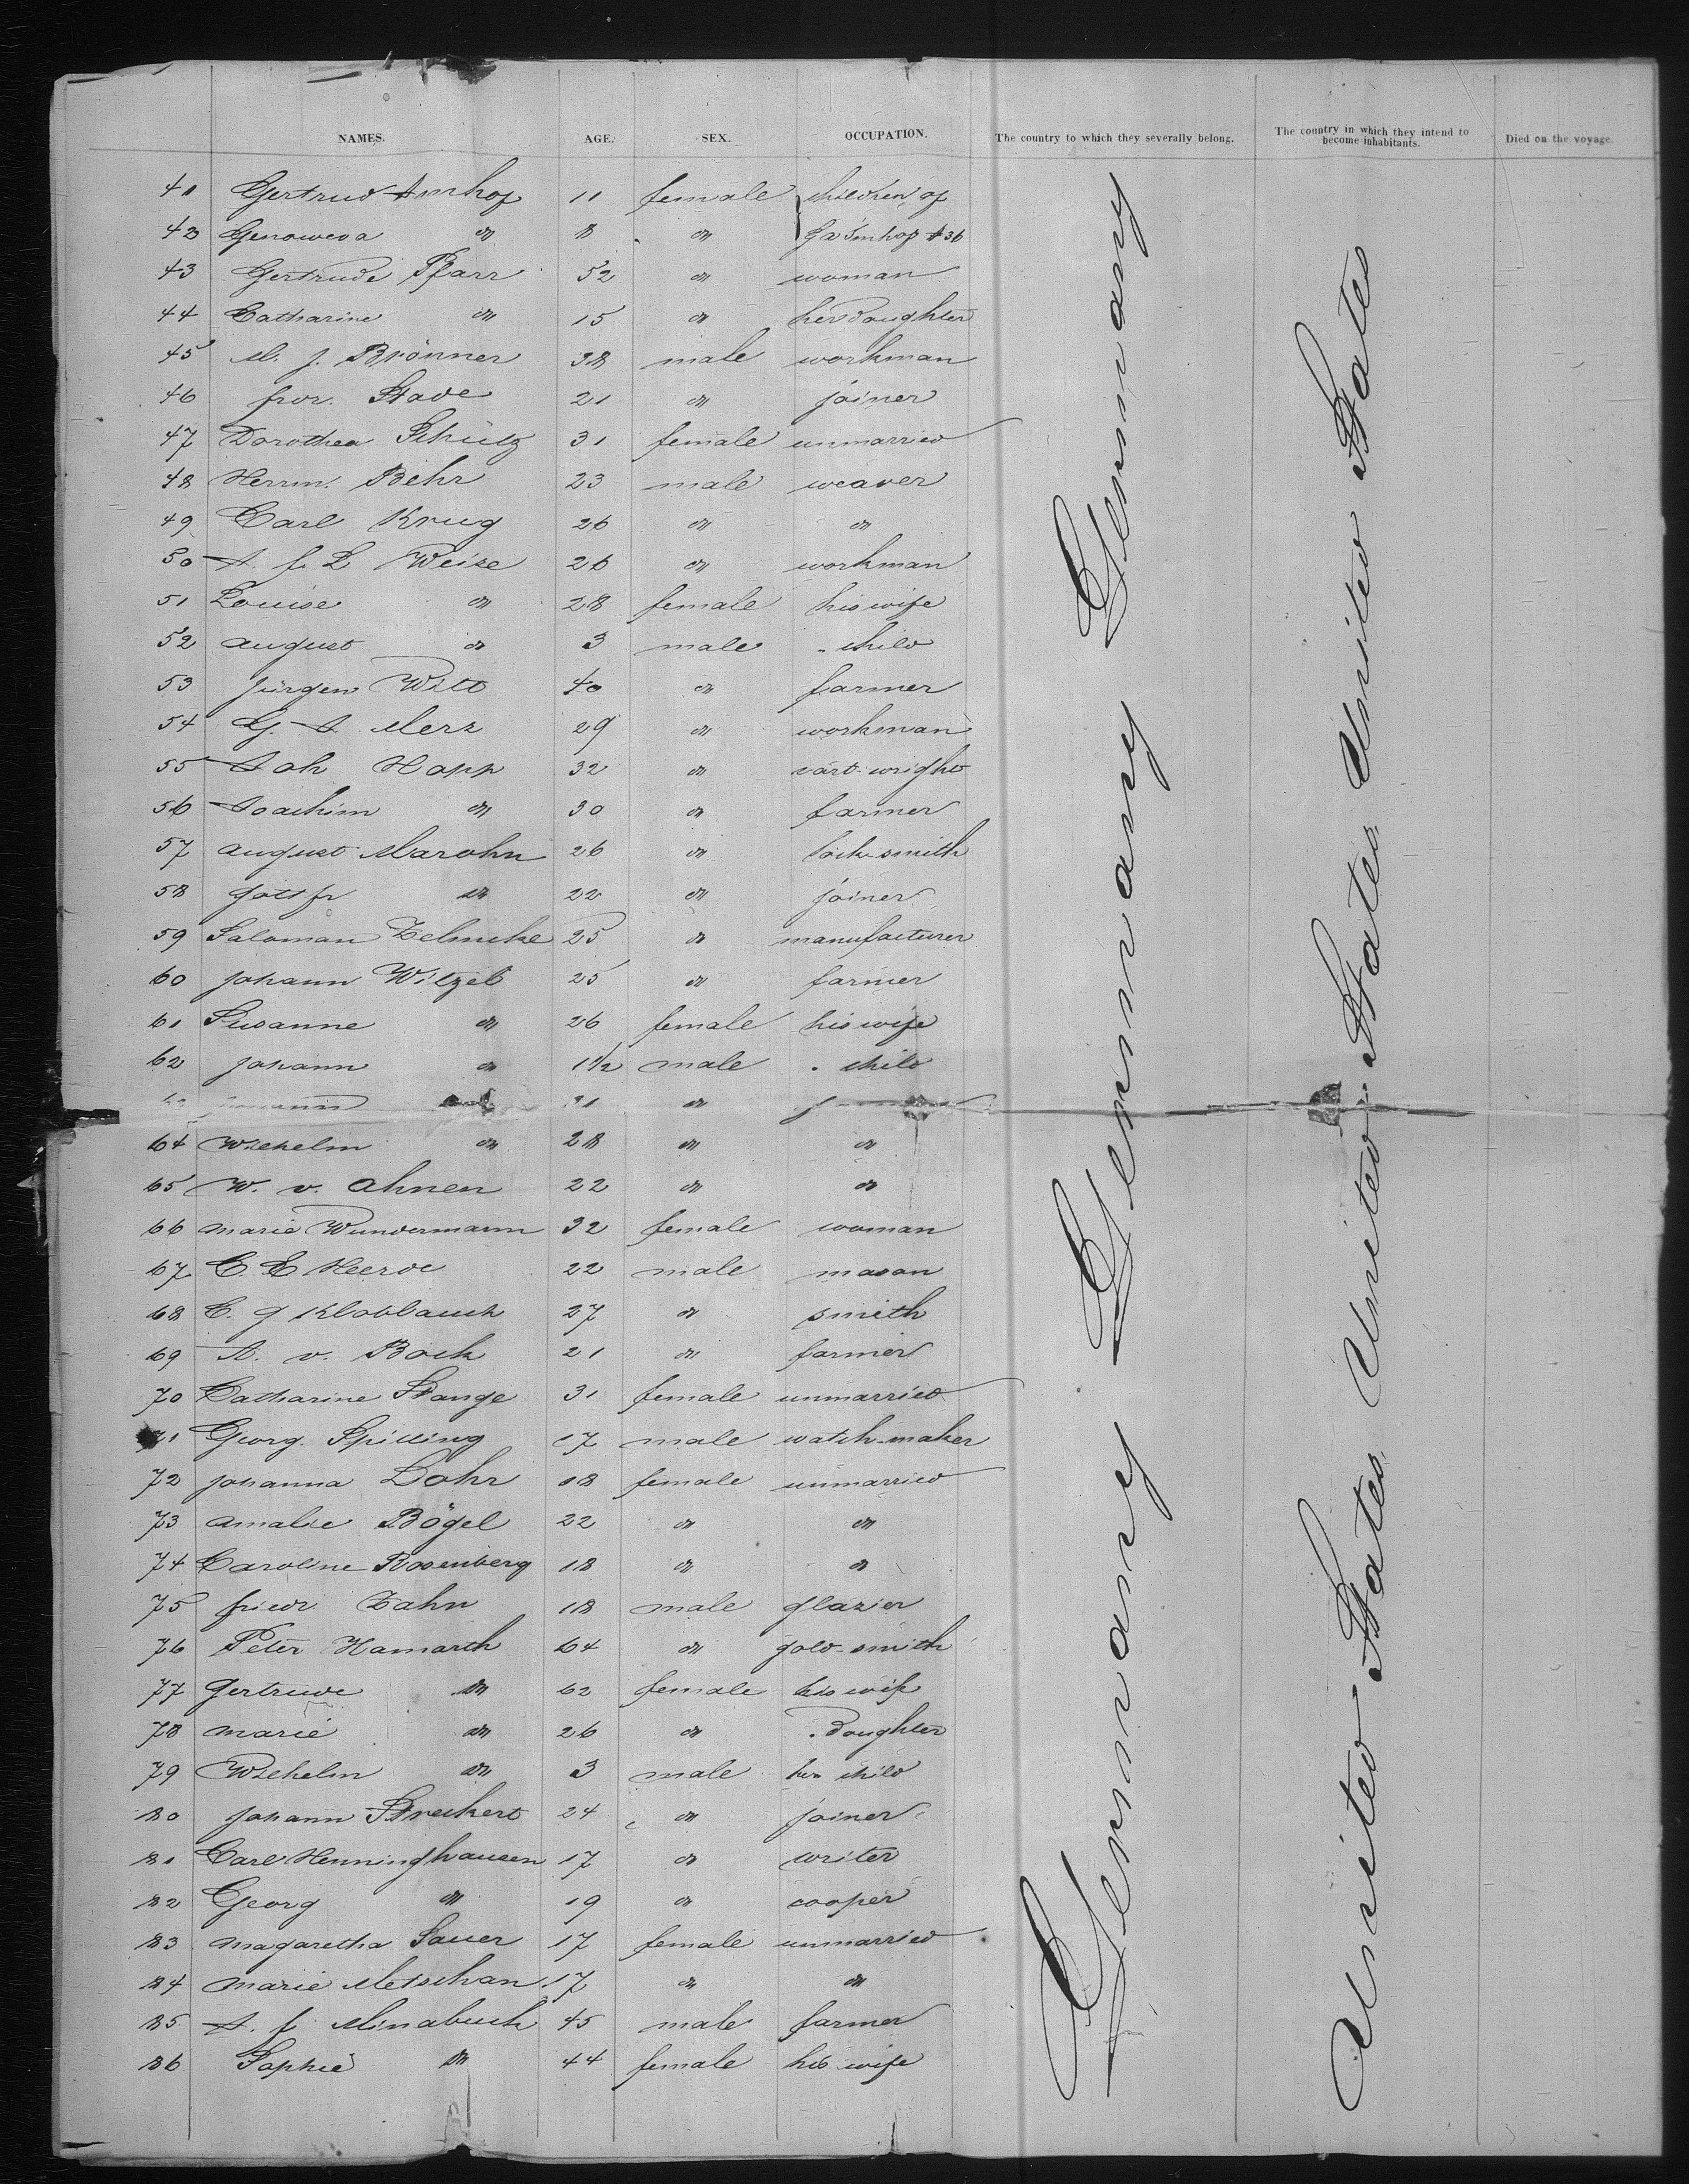 NAMES. AGE. SEX. OCCUPATION. The country to which they severally belong. The country in which they intend to become inhabitants. Died on the voyage.
41 Gertrud Imhof 11 female children of
42 Genoweva do 8 do Ga Imhof # 36
43 Gertrude Pfarr 52 do woman
44 Catharine do 15 do her daughter
45 M. J. Brönner 38 male workman
46 Frdr. Stade 21 do joiner
47 Dorothea Schütz 31 female unmarried
48 Herrm. Behr 23 male weaver
49 Carl Krug 26 do do
50 A. F. L Weise 26 do workman
51 Louise do 28 female his wife
52 August do 3 male " child
53 Jürgen Witt 40 do farmer
54 G. A. Merz 29 do workman
55 Joh Hopp 32 do cart-wright
56 Joachim do 30 do farmer
57 August Marohn 26 do lock-smith
58 Gottfr do 22 do joiner
59 Saloman Zelmcke 25 do manufacturer
60 Johann Witzel 25 do farmer
61 Susanne do 26 female his wife
62 Johann do 1 1/2 male " child
31 do
64 Wilhelm do 28 do do
65 W. v. Ahnen 22 do do
66 Marie Wundermann 32 female woman
67 C. E Heerde 22 male mason
68 C. G Kloblauch 27 do smith
69 A. v. Bock 21 do farmer
70 Catharine Stange 31 female unmarried
71 Georg. Spilling 17 male watch-maker
72 Johanna Dohr 18 female unmarried
73 Amalie Bögel 22 do do
74 Caroline Rosenberg 18 do do
75 Friedr. Zahn 18 male glazier
76 Peter Hamarth 64 do gold-smith
77 Gertrude do 62 female his wife
78 Marie do 26 do " daughter
79 Wilhelm do 3 male her child
80 Johann Streckert 24 do joiner
81 Carl Henninghausen 17 do writer
82 Georg do 19 do cooper
83 Magaretha Sauer 17 female unmarried
84 Marie Metschan 17 do do
85 A. F. Minabuck 45 male farmer
86 Sophie do 44 female his wife
Germany Germany Germany Germany
United States United States United States